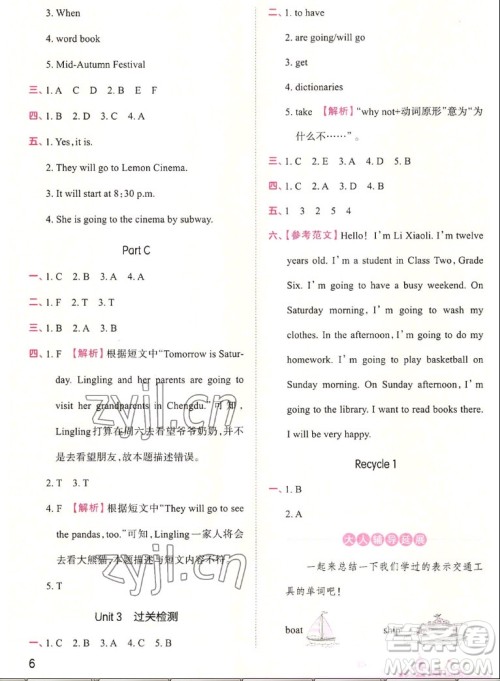 3. When
4. word book
5. Mid-Autumn Festival
三、1. A C D 2. B 3. A
四、1. C 2. B 3. C 4. A
五、1. Yes, it is.
2. They will go to Lemon Cinema.
3. It will start at 8:30 p.m.
4. She is going to the cinema by subway.
Part C
一、1. C 2. B 3. A 4. A
二、1. F 2. T 3. T
四、1. F 【解析】根据短文中“Tomorrow is Satur-
day. Lingling and her parents are going to
visit her grandparents in Chengdu.”可知,
Lingling打算在周六去看望爷爷奶奶,并不
是去看望朋友,故本题描述错误。
2. T
3. T
4. F 【解析】根据短文中“They will go to see
the pandas, too.”可知,Lingling一家人将会
去看大熊猫,本题描述与短文内容不符。
5. T
Unit 3 过关检测
一、1. C 2. B 3. C 4. A 5. C
6
二、1. to have
2. are going/will go
3. get
4. dictionaries
5. take 【解析】“why not+动词原形”意为“为
什么不……”。
三、1. C 2. B 3. C 4. A 5. A
四、1. C 2. D 3. E 4. A 5. B
五、1 3 2 5 4
六、【参考范文】Hello! I'm Li Xiaoli. I'm twelve
years old. I'm a student in Class Two, Grade
Six. I'm going to have a busy weekend. On
Saturday morning, I'm going to wash my
clothes. In the afternoon, I'm going to do my
homework. I'm going to play basketball on
Sunday morning. On Sunday afternoon, I'm
going to the library. I'm going to read books.
I will be very happy.
Recycle 1
一、1. B
2. A
大人辅导延展
一起来总结一下我们学过的表示交通工
具的单词吧!
boat
ship
zyjl.cn
zyjl.cn
答案圈